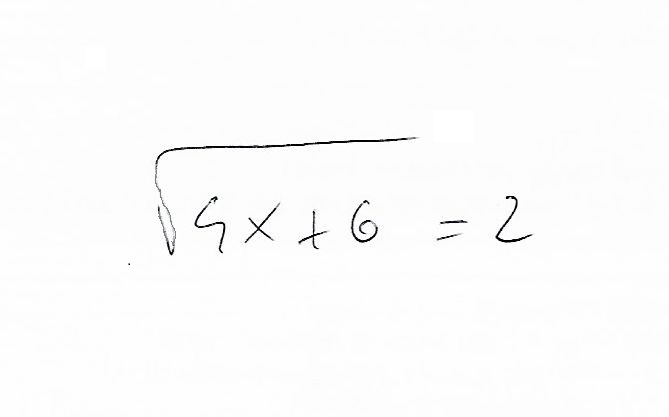 √4x+6 = 2